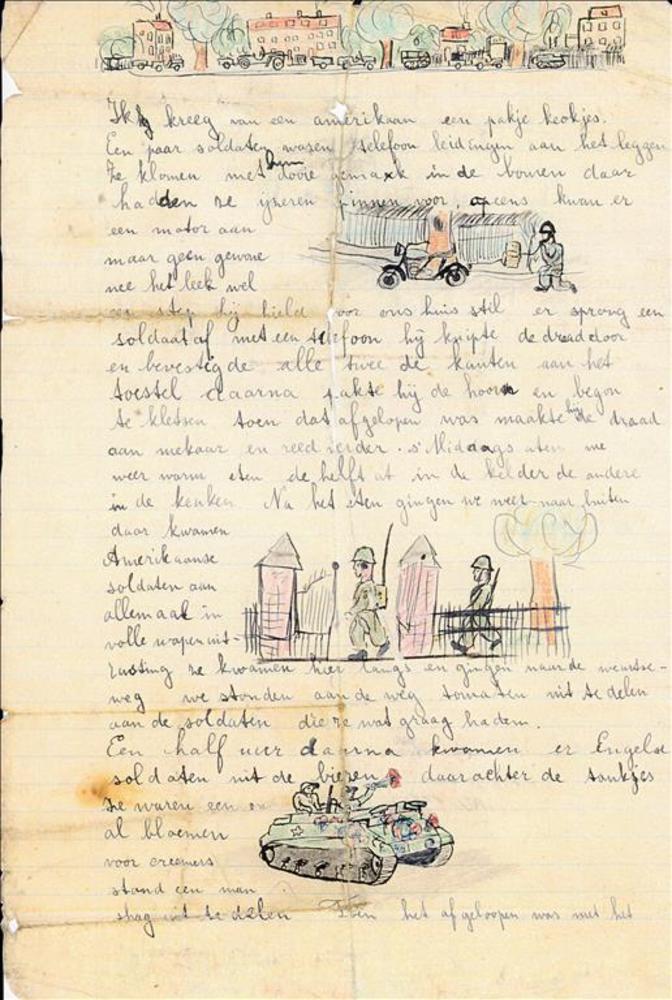 Ik kreeg van een amerikaan een pakje keokjes.
Een paar soldaten waren telefoon leidingen aan het leggen
Ze klomen met hun dooie gemaxk in de bomen daar
hadden ze ijzeren pinnen voor, opeens kwam er
een motor aan
maar geen gewone
nee het leek wel
een step hij hield voor ons huis stil er sprong een
soldaat af met een telefoon hij knipte de draad door
en bevestigde alle twee de kanten aan het
toestel daarna pakte hij de hoorn en begon
te kletsen toen dat afgelopen was maakte hij de draad
aan mekaar en reed verder. s'Middags aten we
weer warm eten de helft at in de kelder de andere
in de keuken Na het eten gingen we weer naar buiten
daar kwamen
Amerikaanse
soldaten aan
allemaal in
volle wapenuit-
rusting ze kwamen hier langs en gingen naar de
weg we stonden aan de weg tomaten uit te delen
aan de soldaten die ze wat graag hadem.
Een half uur daarna kwamen er Engelse
soldaten uit de daarachter de tankjes
ze waren een en
al bloemen
voor creemers
stond een man
shag uit te delen Toen het afgeloopen was met het